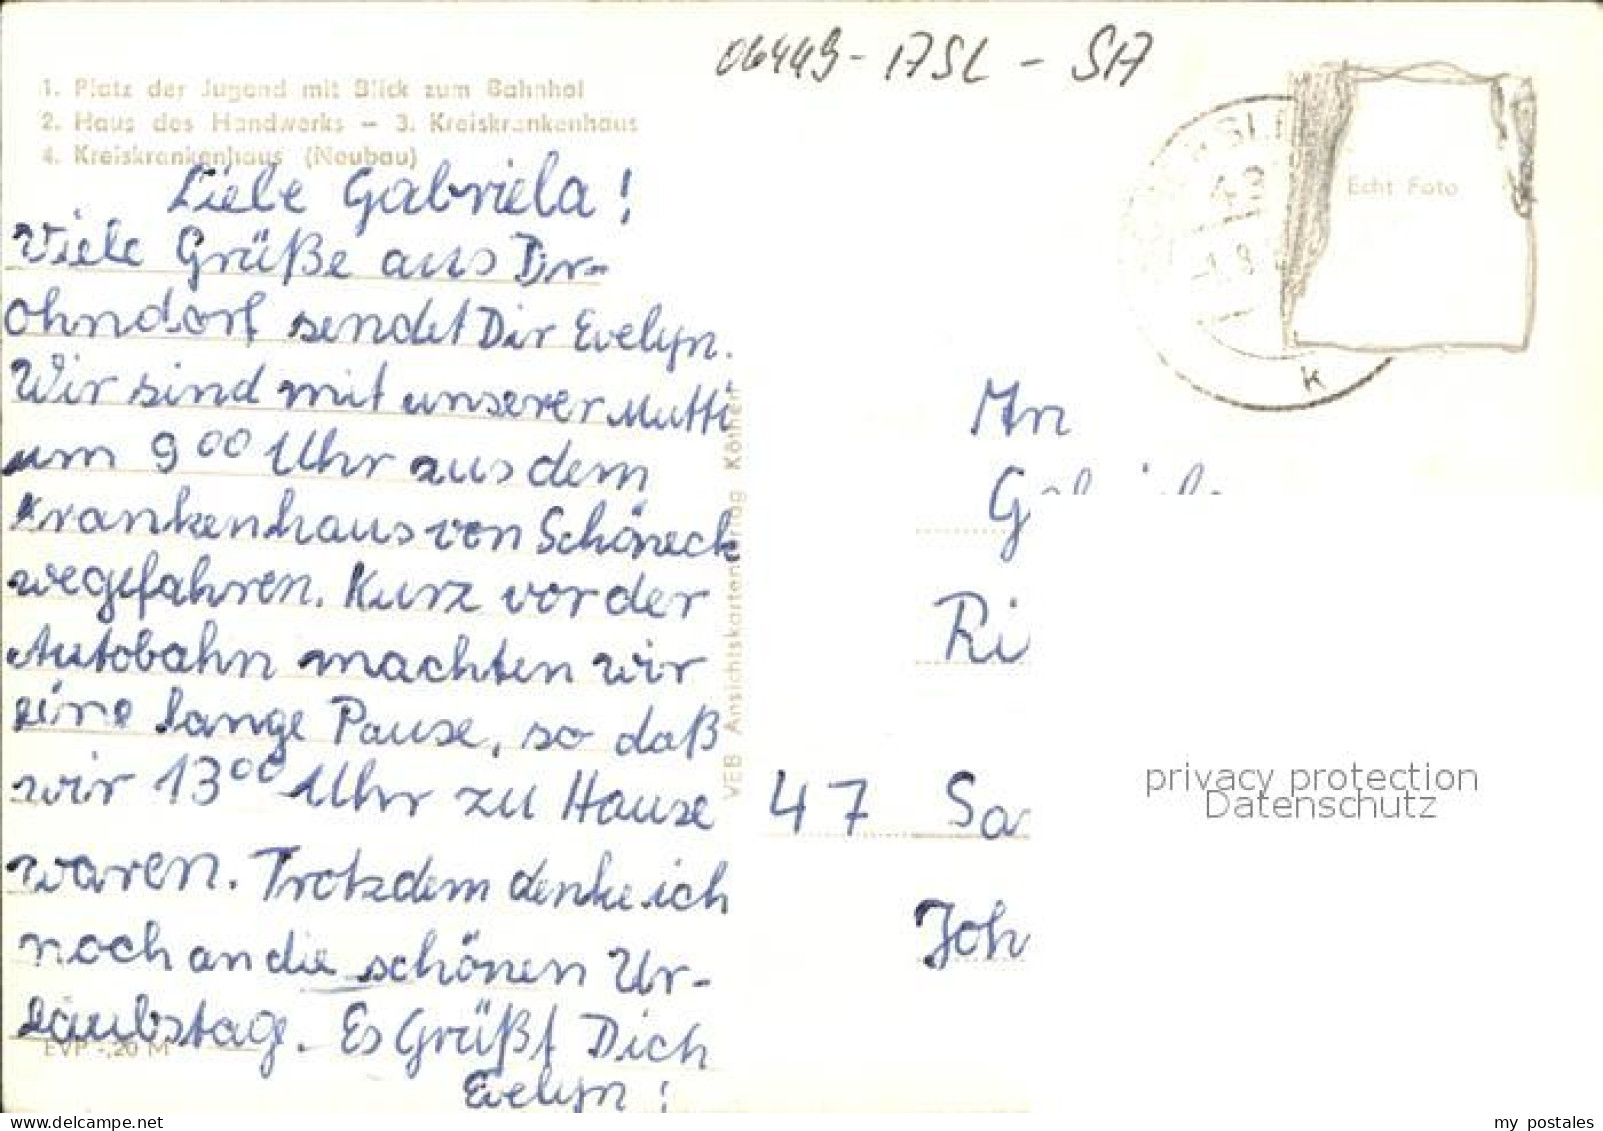 06449-ASL-SA
1. Platz der Jugend mit Blick zum Bahnhof
2. Haus des Handwerks – 3. Kreiskrankenhaus
4. Kreiskrankenhaus (Neubau)
Echt Foto
k
Liebe Gabriela!
Viele Grüße aus Dr-
ohndorf sendet Dir Evelyn.
Wir sind mit unserer Mutti
um 9 00 Uhr aus dem
Krankenhaus von Schöneck
wegefahren. Kurz vor der
Autobahn machten wir
eine lange Pause, so daß
wir 13 00 Uhr zu Hause
waren. Trotzdem denke ich
noch an die schönen Ur-
laubstage. Es Grüßt Dich
Evelyn!
EVP -,20 M
VEB Ansichtskartenverlag Köthen
An
Ri
47 Sa
Joh
privacy protection
Datenschutz
my postales